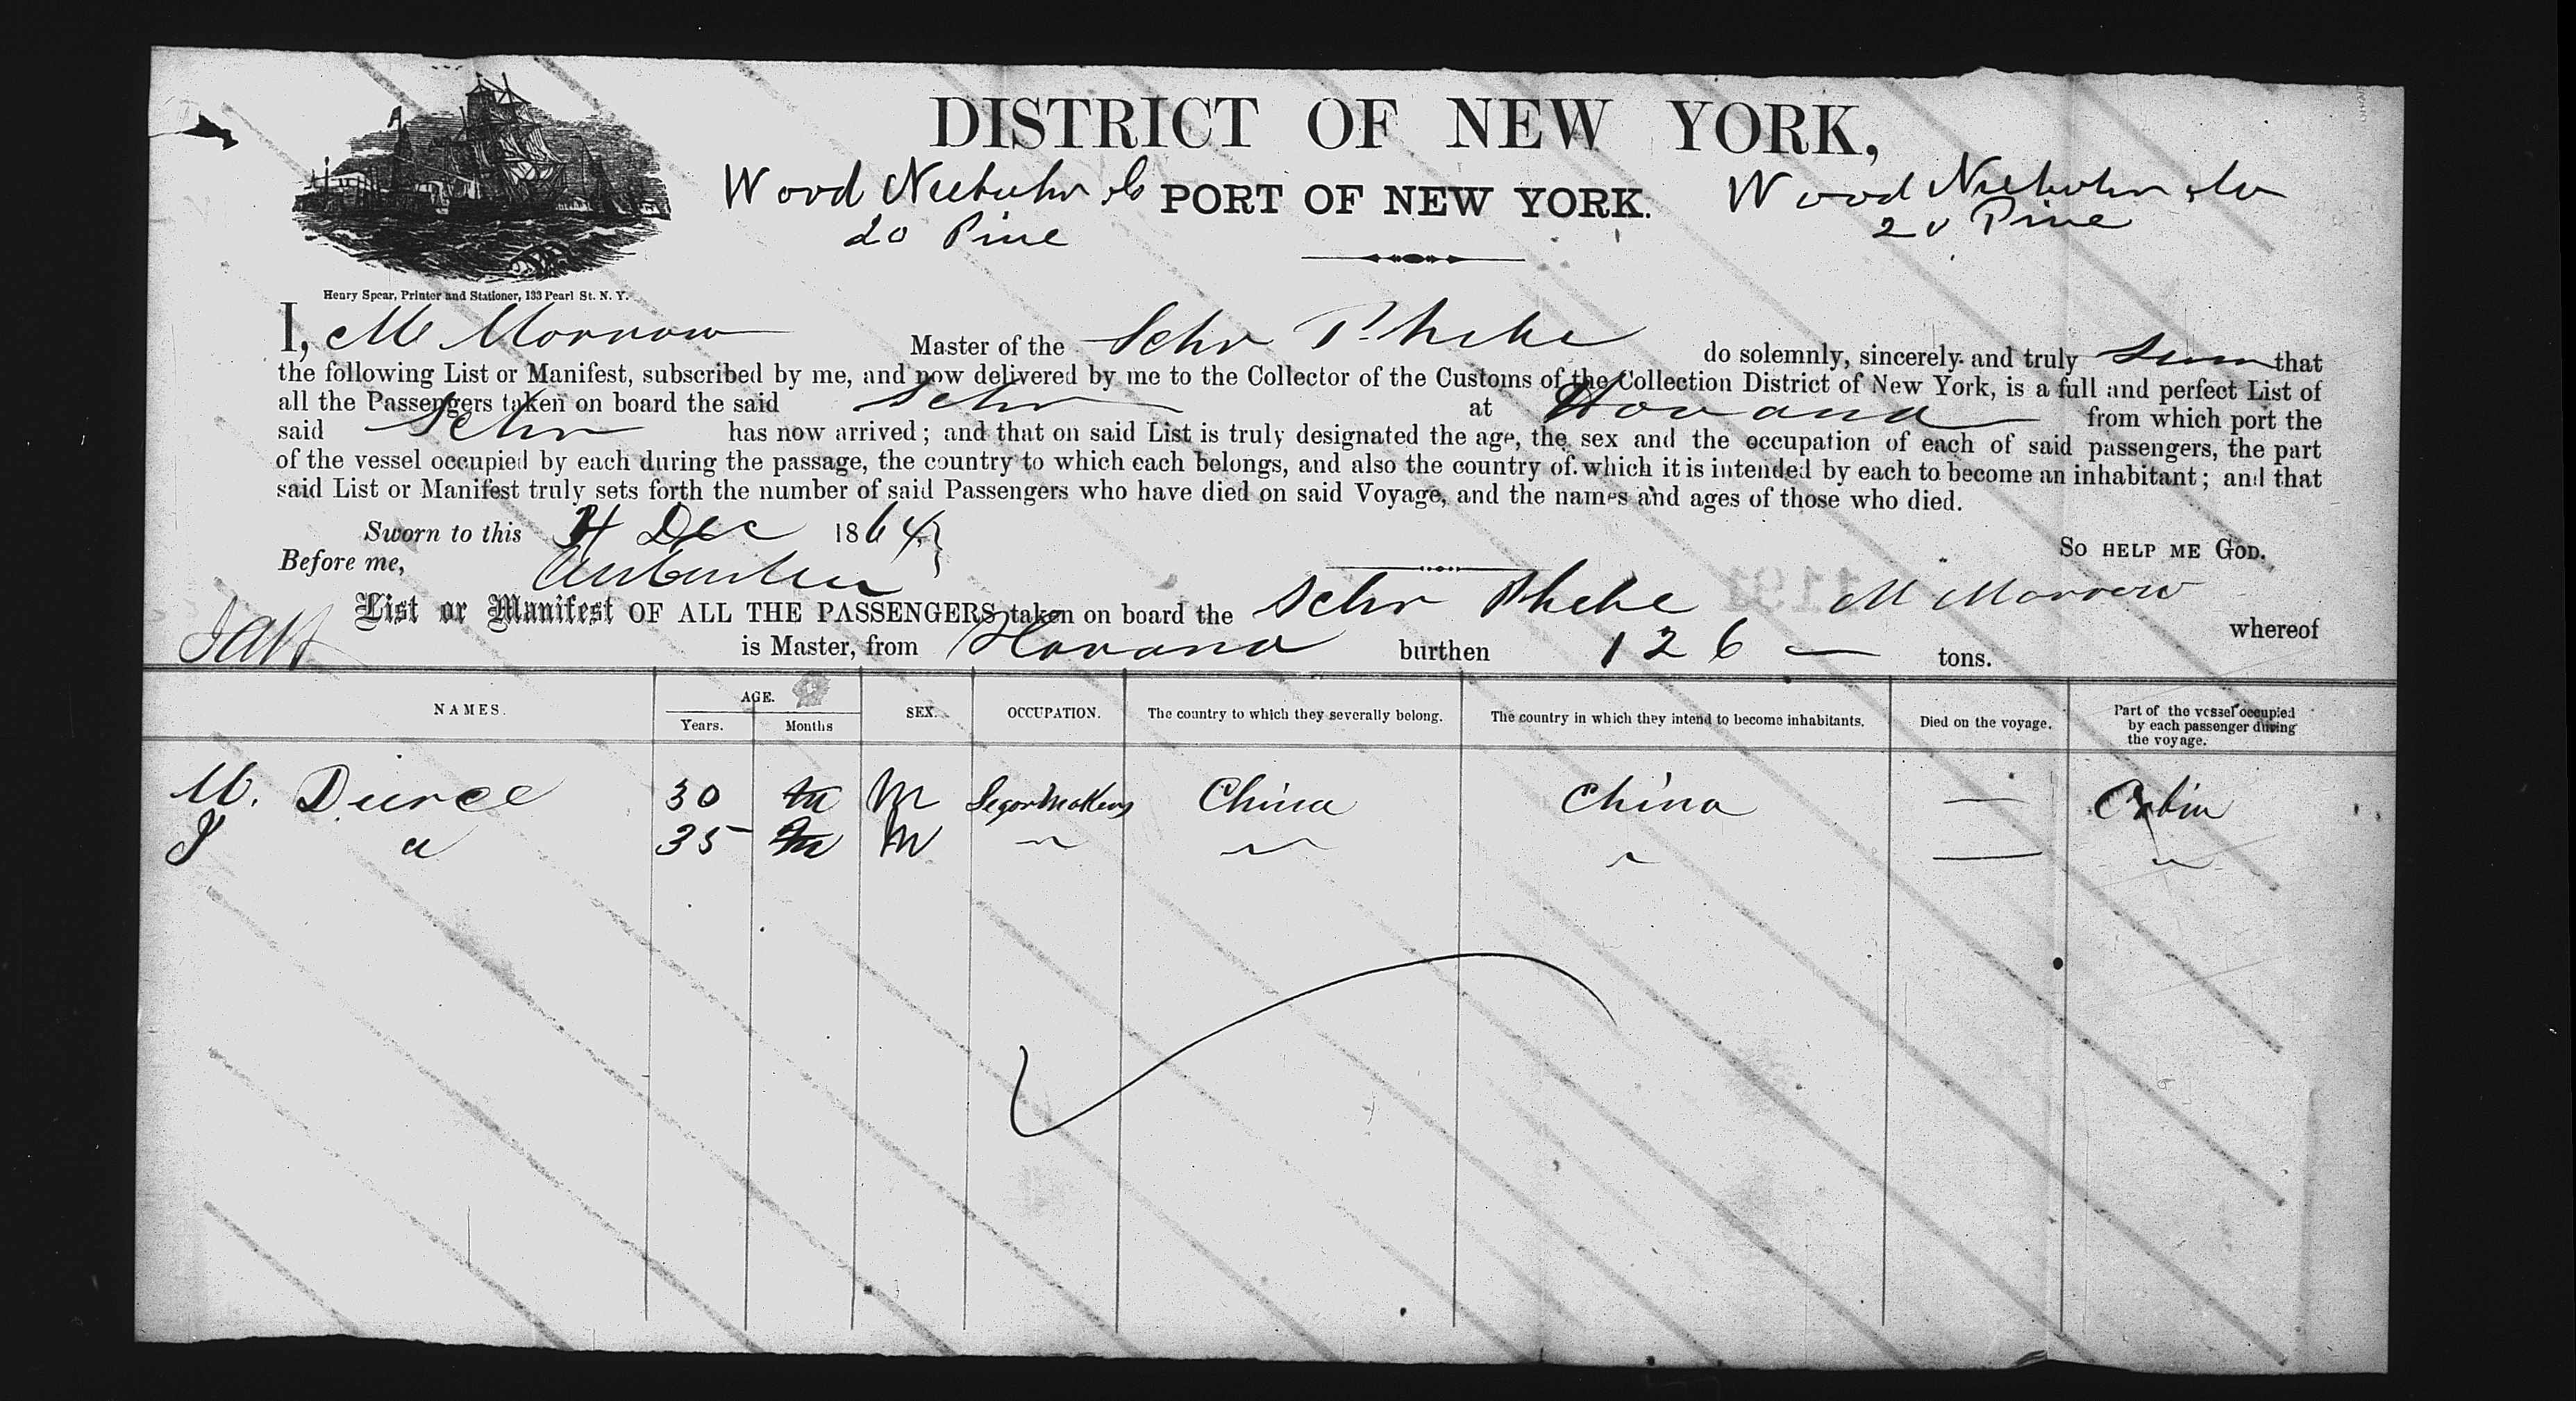 DISTRICT OF NEW YORK,
Wood Niebuhr & Co PORT OF NEW YORK. Wood Niebuhr & Co
20 Pine 20 Pine
Henry Spear, Printer and Stationer, 133 Pearl St. N. Y.
I, M Morrow Master of the Schr Phebe do solemnly, sincerely and truly swear that
the following List or Manifest, subscribed by me, and now delivered by me to the Collector of the Customs of the Collection District of New York, is a full and perfect List of
all the Passengers taken on board the said Schr at Havana from which port the
said Schr has now arrived; and that on said List is truly designated the age, the sex and the occupation of each of said passengers, the part
of the vessel occupied by each during the passage, the country to which each belongs, and also the country of which it is intended by each to become an inhabitant; and that
said List or Manifest truly sets forth the number of said Passengers who have died on said Voyage, and the names and ages of those who died.
Sworn to this Dec 1864
SO HELP ME GOD.
Before me,
List or Manifest OF ALL THE PASSENGERS taken on board the Schr Phebe M Morrow whereof
is Master, from Havana burthen 126 tons.
NAMES. AGE. Years. Months SEX. OCCUPATION. The country to which they severally belong. The country in which they intend to become inhabitants. Died on the voyage. Part of the vessel occupied by each passenger during the voyage.
M. 30 M Segar Makers China China — Cabin
J " 35 M " " " — "